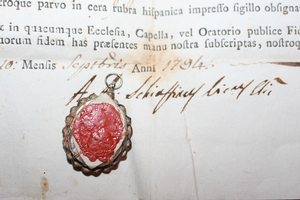 roque parvo in cera rubra hispanica impresso sigillo obsignat
x in quacumque Ecclesia, Capella, vel Oratorio publice Fid
norum fidem has præsentes manu nostra subscriptas, nostroq
Mensis Septbris Anni 1794.
A.